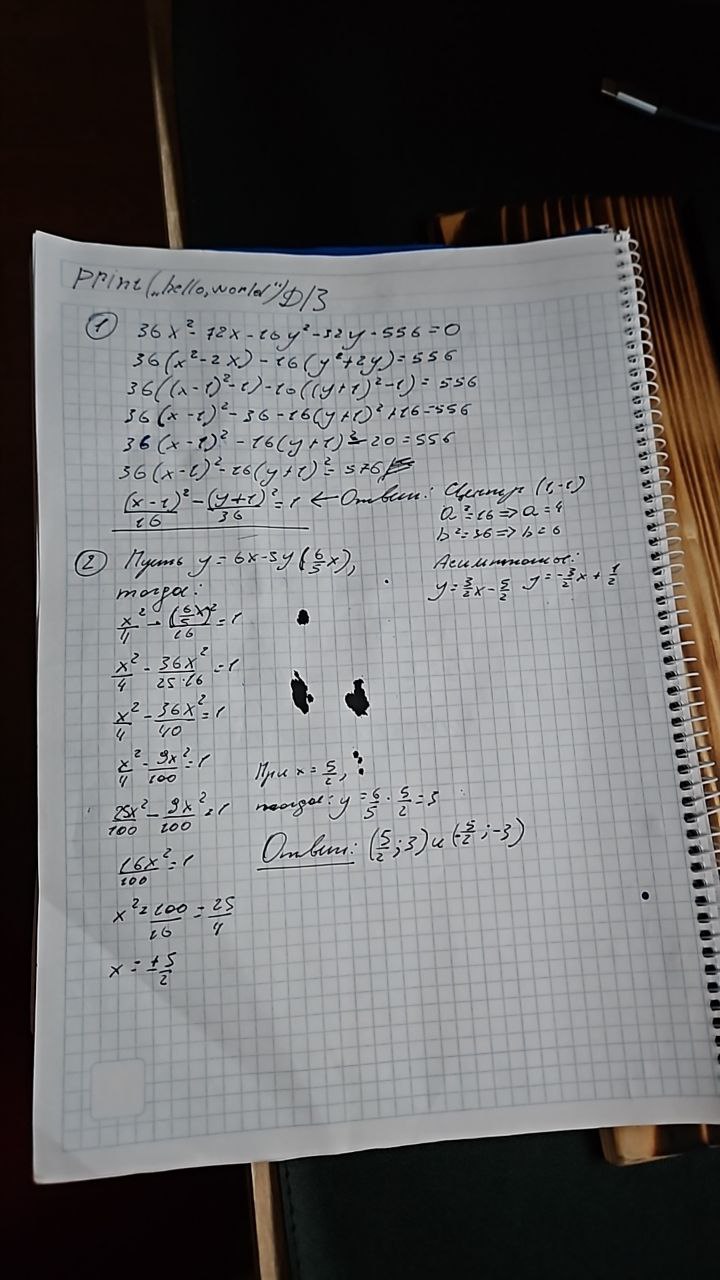 print(„hello, world“) Д/З
1
36x²-72x-16y²-32y-556=0
36(x²-2x)-16(y²+2y)=556
36((x-1)²-1)-16((y+1)²-1)=556
36(x-1)²-36-16(y+1)²+16=556
36(x-1)²-16(y+1)²-20=556
36(x-1)²-16(y+1)²=576
(x-1)²/16-(y+1)²/36=1 ← Ответ: Центр (1,-1)
a²=16=>a=4
b²=36=>b=6
Асимптоты:
y=3/2x-5/2 y=-3/2x+1/2
2
Пусть y=6x-5y(6/5x),
тогда:
x²/4-(6/5x)²/16=1
x²/4-36x²/25·16=1
x²/4-36x²/40=1
x²/4-9x²/100=1
25x²/100-9x²/100=1
16x²/100=1
x²=100/16=25/4
x=±5/2
При x=5/2,
тогда: y=6/5·5/2=3
Ответ: (5/2;3) и (-5/2;-3)